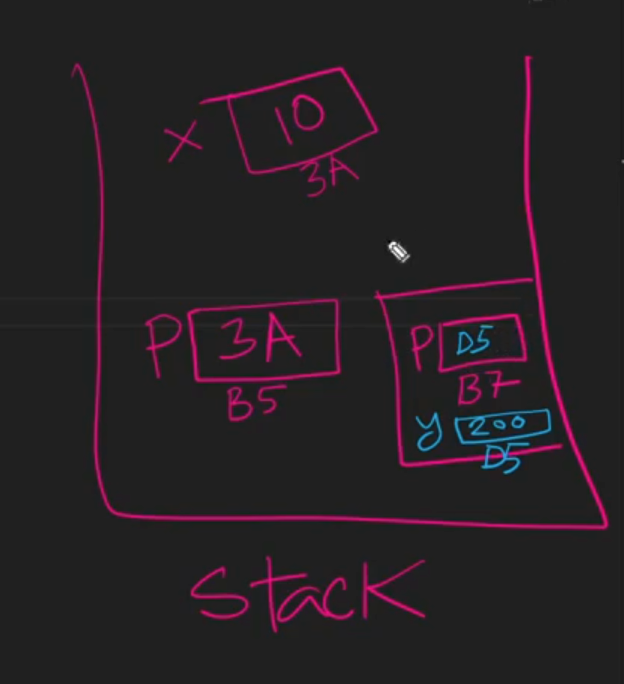 x 10
3A
P 3A
B5
P D5
B7
y 200
D5
Stack